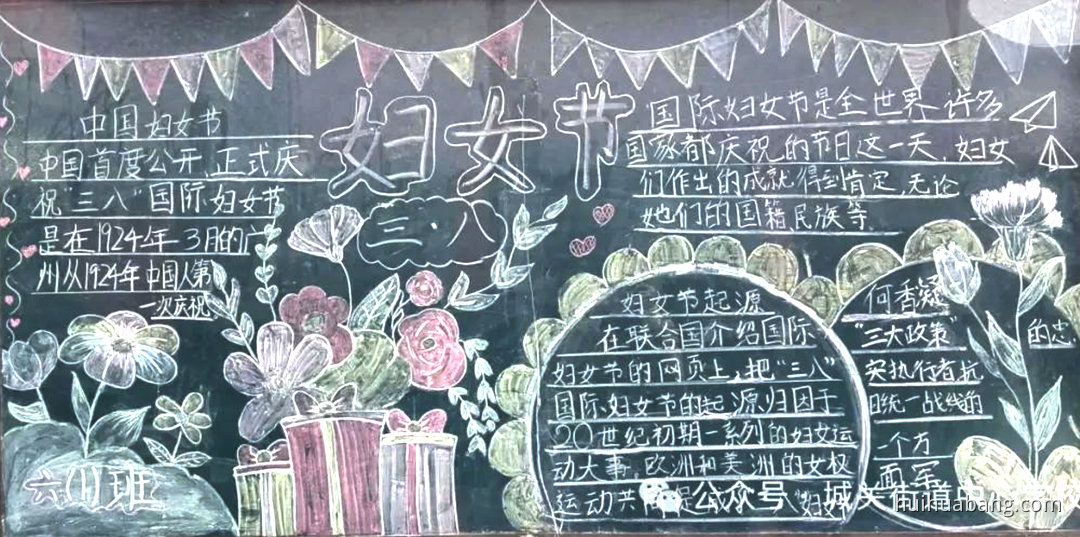 妇女节
三·八
中国妇女节
中国首度公开、正式庆
祝“三八”国际妇女节
是在1924年3月的广
州从1924年中国人第
一次庆祝
国际妇女节是全世界许多
国家都庆祝的节日这一天，妇女
们作出的成就得到肯定，无论
她们的国籍、民族等
妇女节起源
在联合国介绍国际
妇女节的网页上，把“三八”
国际妇女节的起源归因于
20世纪初期一系列的妇女运
动大事，欧洲和美洲的女权
运动共同促
何香凝
“三大政策”的忠
实执行者抗
日统一战线的
一个方
面军
六(1)班
公众号
huihuabang.com